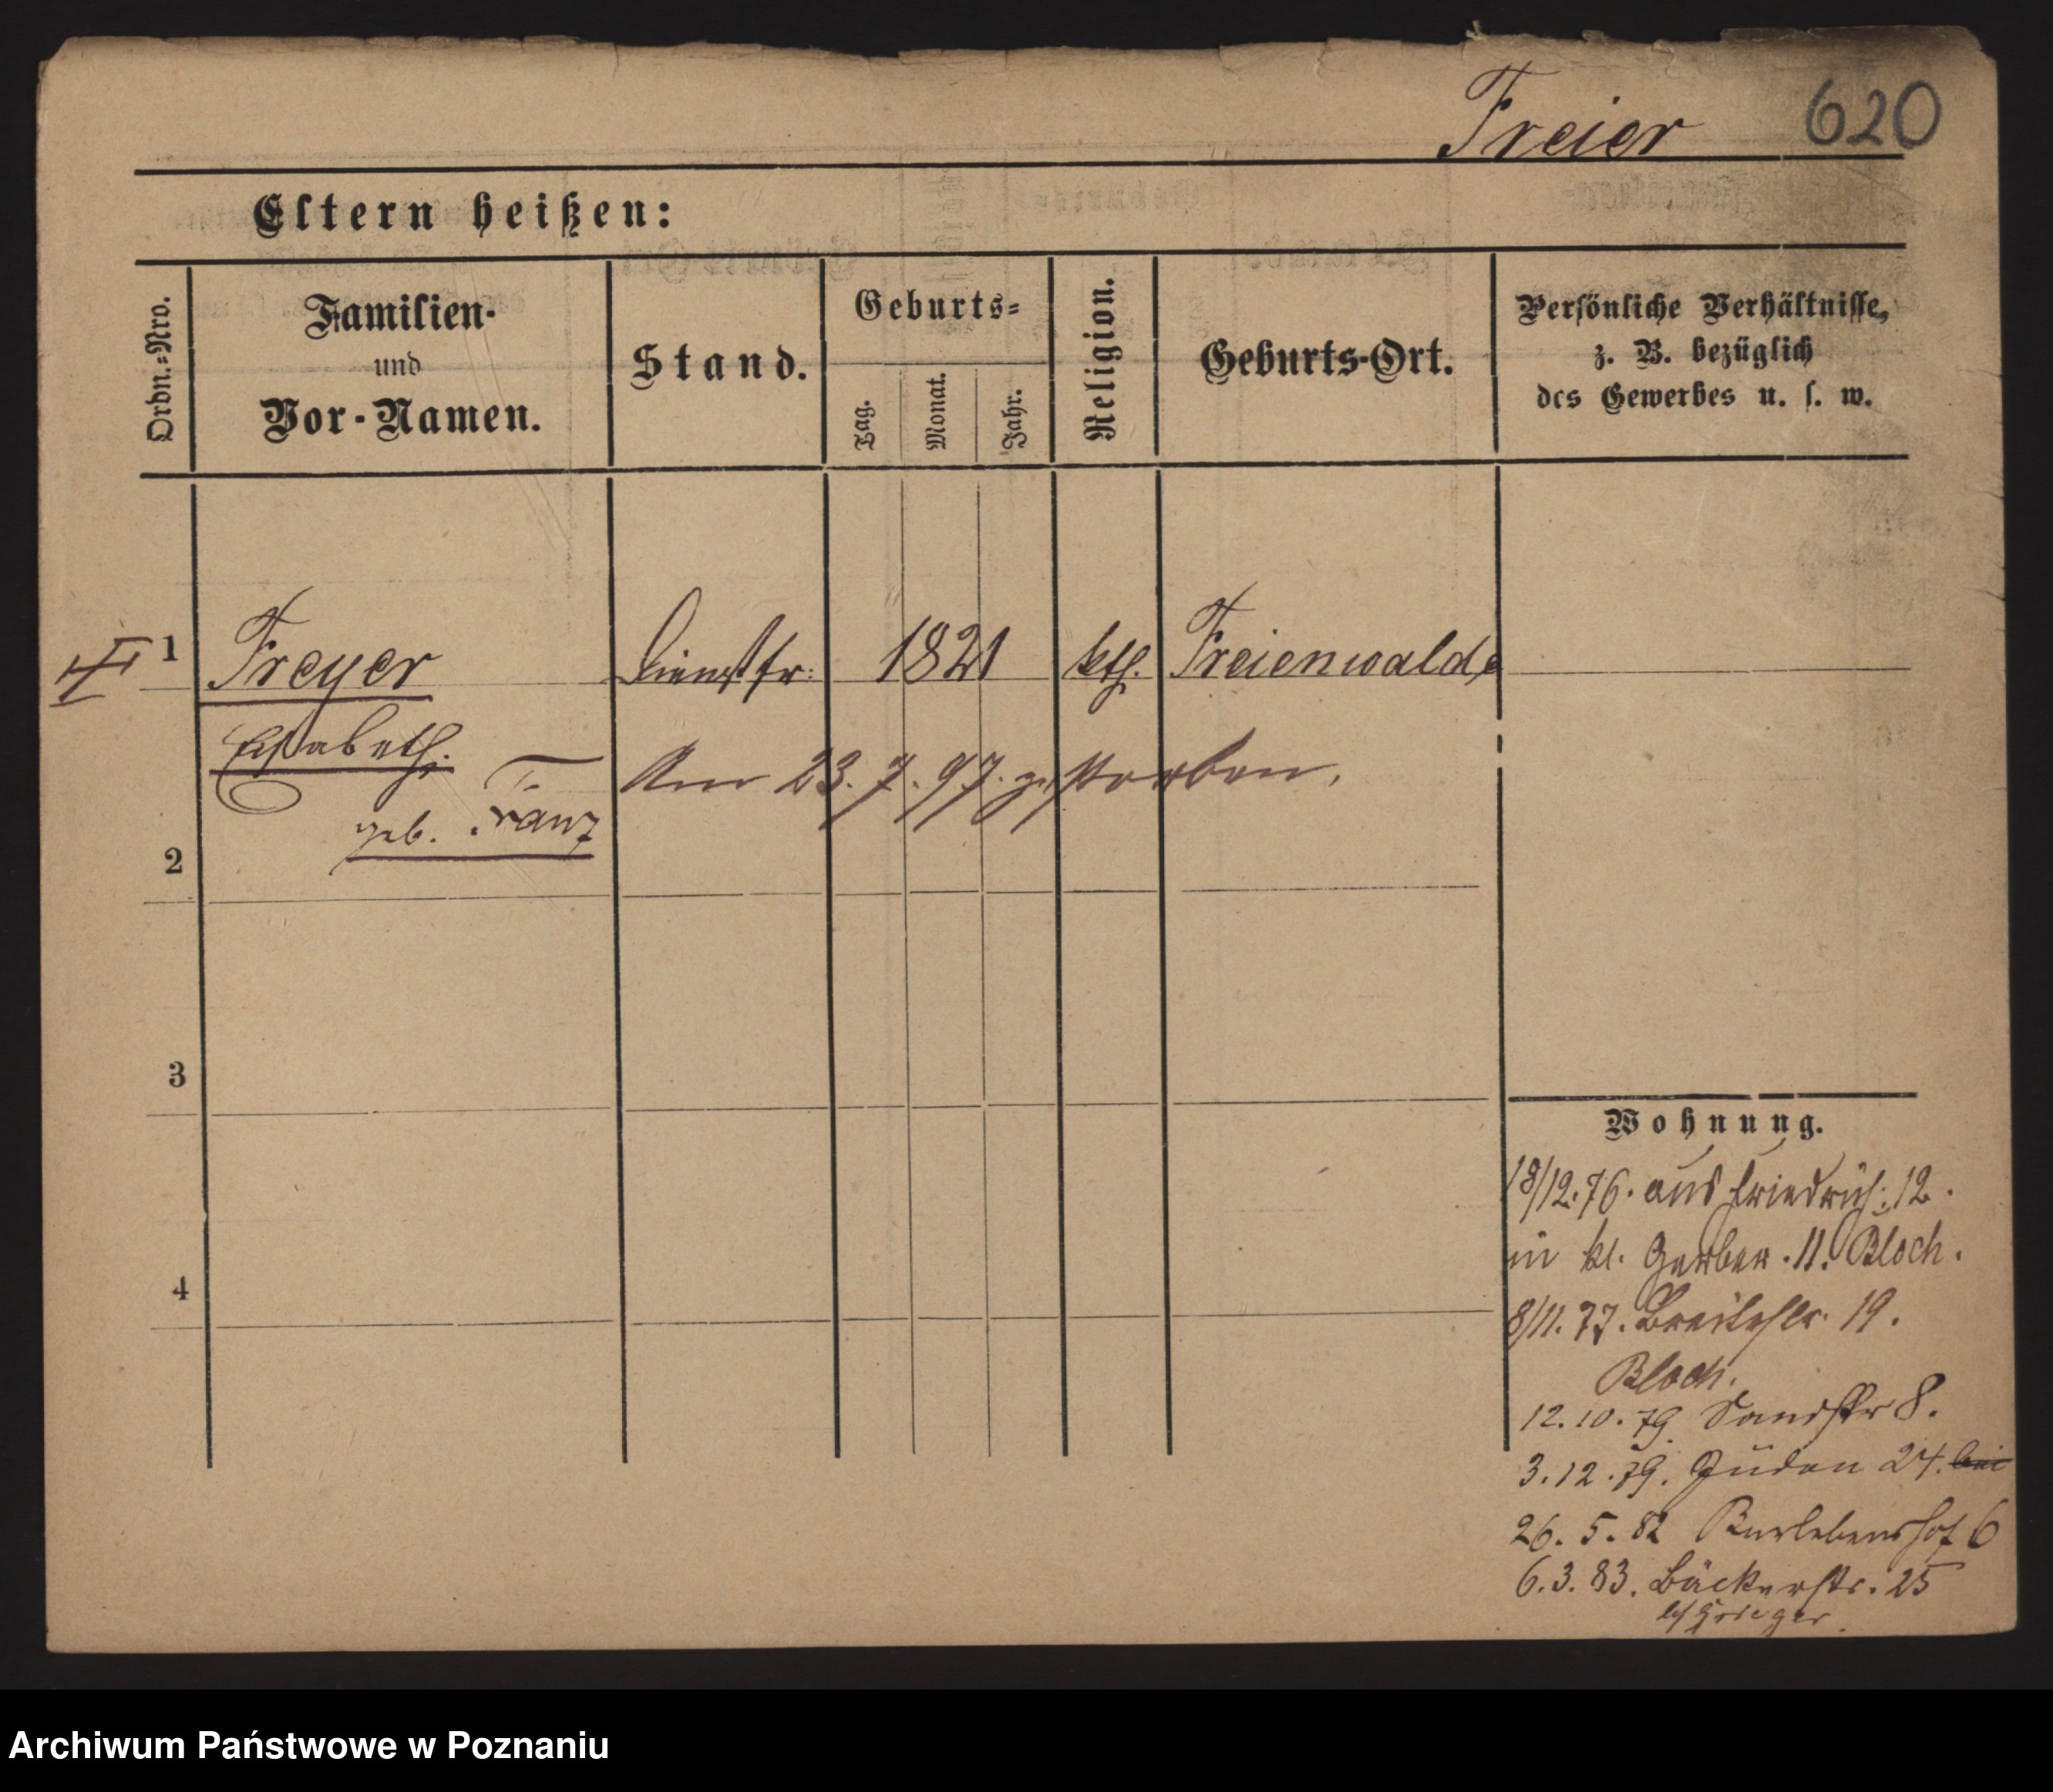 Freier 620
Eltern heißen:
Ordn.=Nro.
Familien-
und
Vor-Namen.
Stand.
Geburts=
Tag.
Monat.
Jahr.
Religion.
Geburts-Ort.
Persönliche Verhältnisse,
z. B. bezüglich
des Gewerbes u. s. w.
1 Freyer Dienstfr: 1821 kth. Freienwalde
Elisabeth.
Am 23.7.97. gestorben.
geb. Franz
2
3
4
Wohnung.
18/12.76. aus Friedrich: 12.
in kl. Gerber. 11. Bloch.
8/11.77. Breitestr. 19.
Bloch.
12.10.79. Sandstr 8.
3.12.79. Juden 24. bei
26. 5. 82 6
6.3.83. Bäckerstr. 25
b/ Krieger
Archiwum Państwowe w Poznaniu